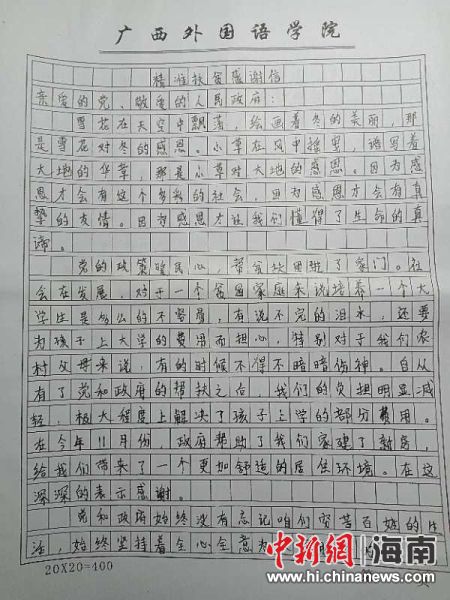 广西外国语学院
精准扶贫感谢信
亲爱的党、敬爱的人民政府：
雪花在天空中飘落，绘画着冬的美丽，那
是雪花对冬的感恩。小草在风中摇曳，谱写着
大地的华章，那是小草对大地的感恩。因为感
恩才会有这个多彩的社会，因为感恩才会有真
挚的友情。因为感恩才让我们懂得了生命的真
谛。
党的政策暖民心，帮贫扶困进了家门。社
会在发展，对于一个贫困家庭来说培养一个大
学生是多么的不容易，有说不完的泪水，还要
为孩子上大学的费用而担心，特别对于我们农
村父母来说，有的时候不得不暗暗伤神。自从
有了党和政府的帮扶之后，我们的负担明显减
轻，极大程度上解决了孩子上学的部分费用。
在今年11月份，政府帮助了我们家建了新房，
给我们带来了一个更加舒适的居住环境。在这
深深的表示感谢。
党和政府始终没有忘记咱们穷苦百姓的生
活，始终坚持着全心全意为
20X20=400
中新网 海南
www.hi.chinanews.com